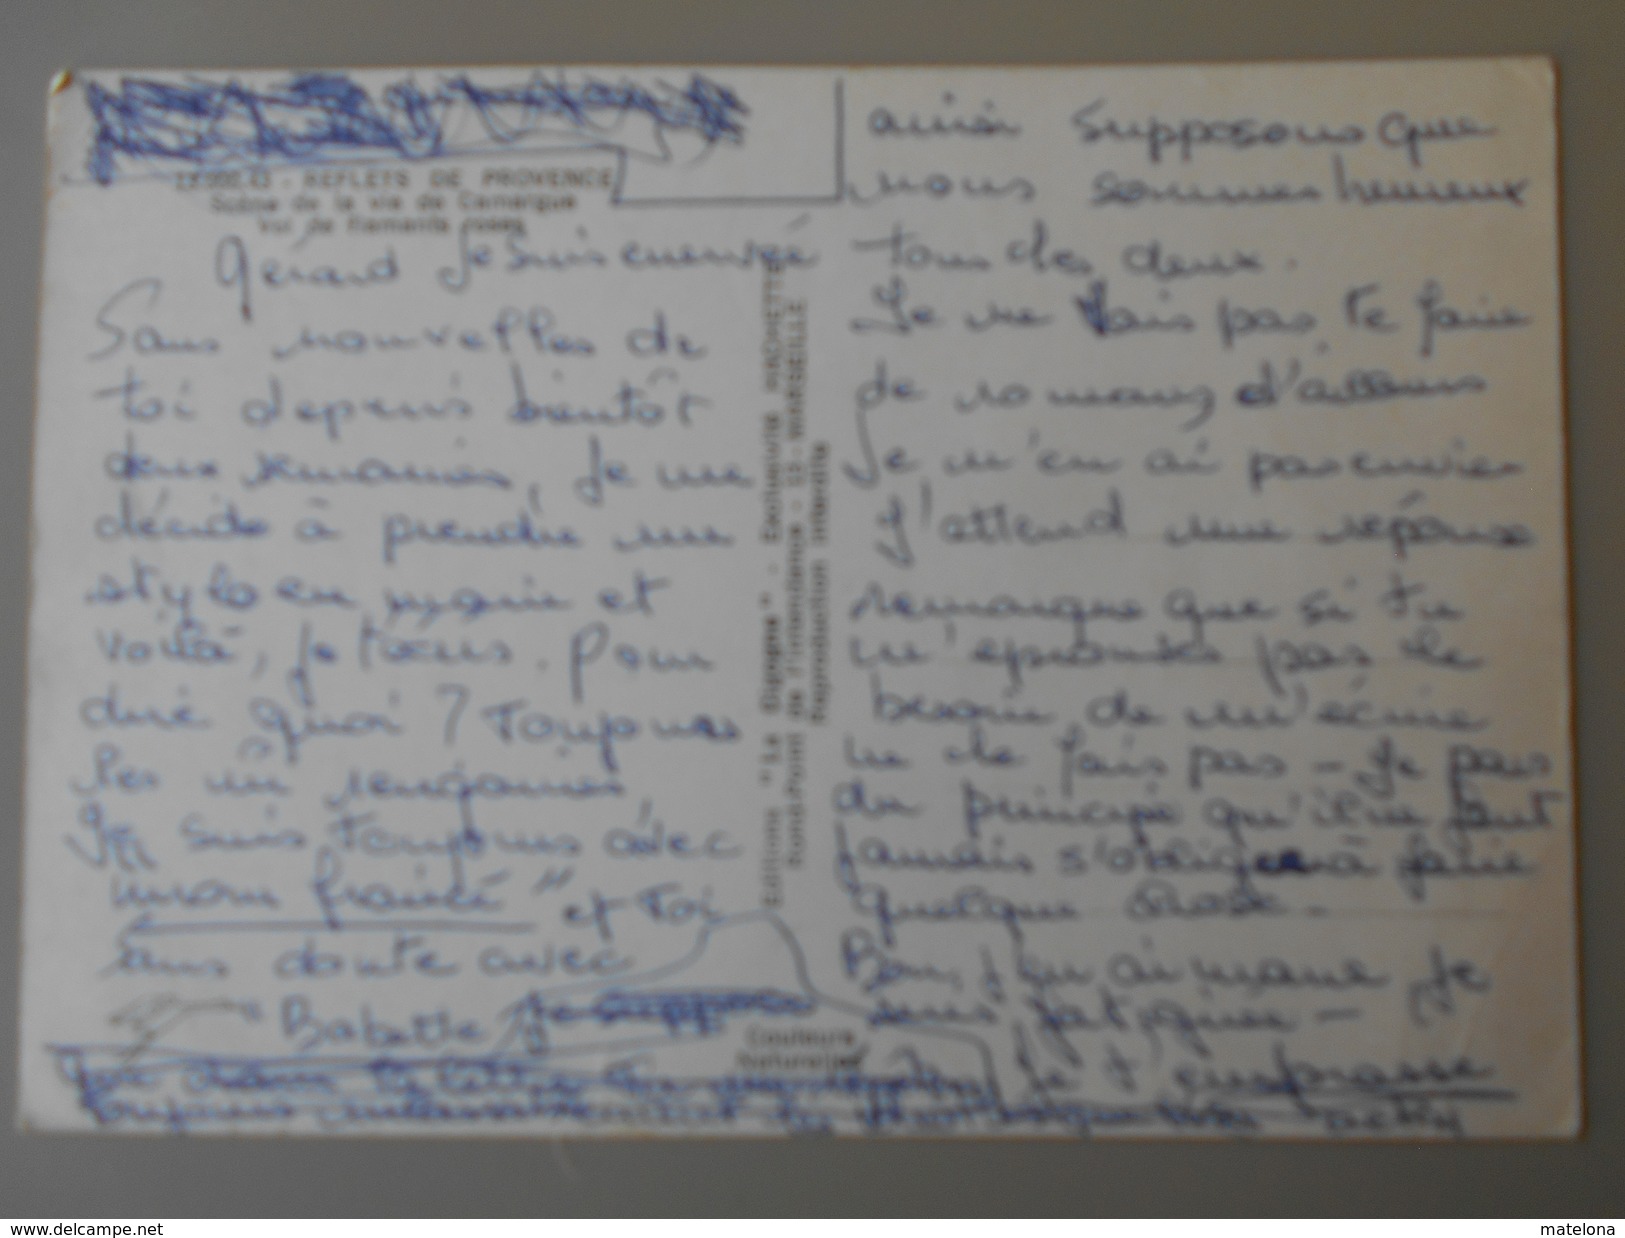 REFLETS DE PROVENCE
Scène de la vie de Camargue
Vol de flamants roses
Gérard Je suis énervée
Sans nouvelles de
toi depuis bientôt
deux semaines, Je me
décide à prendre mon
stylo en main et
voilà, je t'écris. Pour
dire quoi ? Toujours
les
Je suis toujours avec
"mon fiancé" et toi
sans doute avec
Babette, Je suppose
que dans ta lettre
toujours
ainsi supposons que
nous sommes heureux
tous les deux.
Je ne vais pas te faire
de romans d'ailleurs
Je n'en ai pas envie
J'attend une réponse
remarque que si tu
n'éprouves pas le
besoin de m'écrire
ne le fais pas - Je pars
du principe qu'il ne faut
jamais s'obliger à faire
quelque chose -
Bon, j'en ai marre, je
suis fatiguée -
Je t'embrasse
Editions "La Cigogne" - Exclusivité HACHETTE
Rond-Point de l'Intendance - 13 - MARSEILLE
Reproduction interdite
Couleurs
Naturelles
www.delcampe.net
matelona